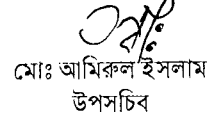 মোঃ আমিরুল ইসলাম
উপসচিব